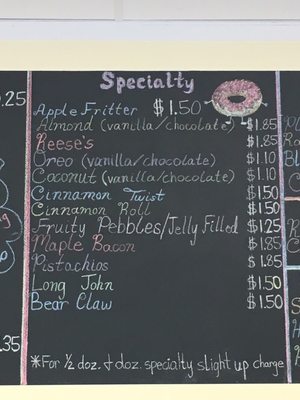 Specialty
Apple Fritter $1.50
Almond (vanilla/chocolate) $1.85
Reese's $1.85
Oreo (vanilla/chocolate) $1.10
Coconut (vanilla/chocolate) $1.10
Cinnamon Twist $1.50
Cinnamon Roll $1.50
Fruity Pebbles/Jelly Filled $1.25
Maple Bacon $1.85
Pistachios $1.85
Long John $1.50
Bear Claw $1.50
*For 1/2 doz. & doz. specialty slight up charge
0.25
.35